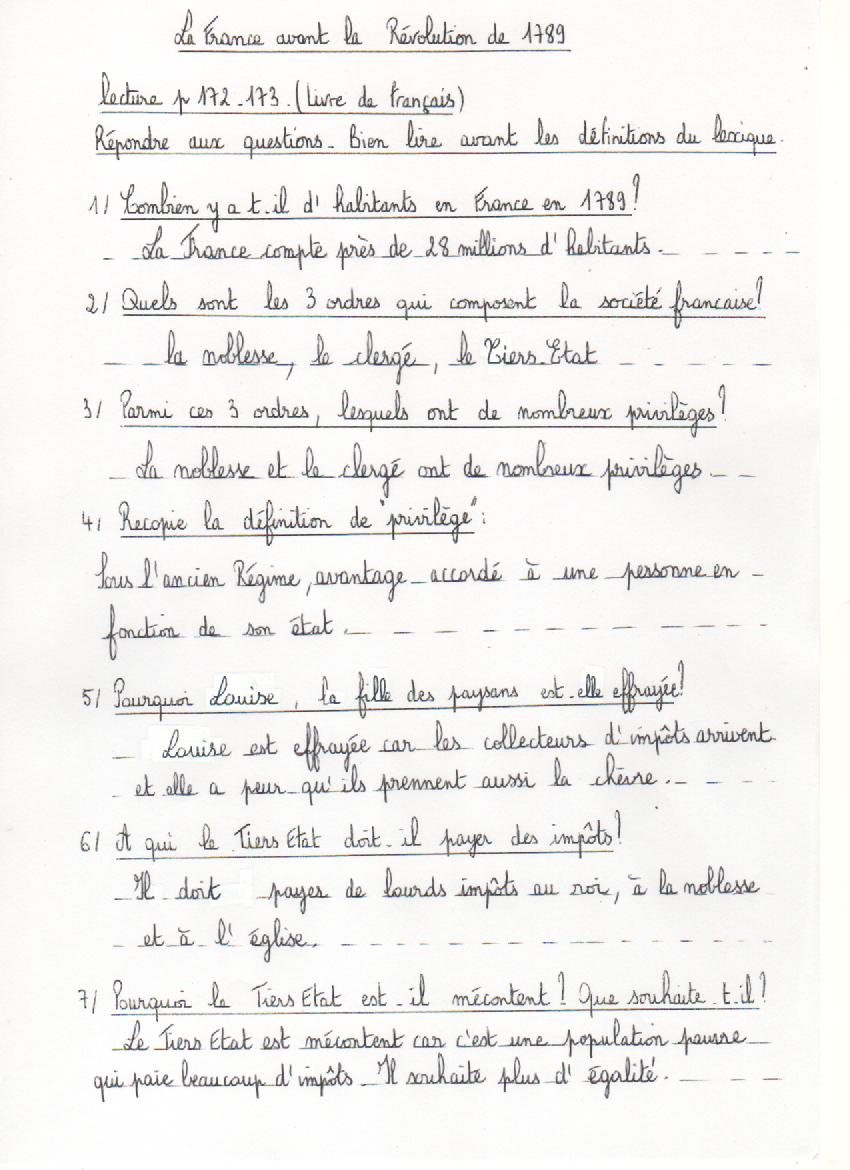 La France avant la Révolution de 1789
lecture p 172-173. (Livre de Français)
Répondre aux questions. Bien lire avant les définitions du lexique.
1/ Combien y a t-il d' habitants en France en 1789?
La France compte près de 28 millions d' habitants.
2/ Quels sont les 3 ordres qui composent la société francaise?
la noblesse, le clergé, le Tiers-Etat
3/ Parmi ces 3 ordres, lesquels ont de nombreux privilèges?
La noblesse et le clergé ont de nombreux privilèges.
4/ Recopie la définition de "privilège":
Sous l'ancien Régime, avantage accordé à une personne en
fonction de son état.
5/ Pourquoi Louise, la fille des paysans est-elle effrayée?
Louise est effrayée car les collecteurs d'impôts arrivent
et elle a peur qu'ils prennent aussi la chèvre.
6/ A qui le Tiers Etat doit-il payer des impôts?
Il doit payer de lourds impôts au roi, à la noblesse
et à l' église.
7/ Pourquoi le Tiers Etat est-il mécontent? Que souhaite-t-il?
Le Tiers Etat est mécontent car c'est une population pauvre
qui paie beaucoup d'impôts. Il souhaite plus d' égalité.